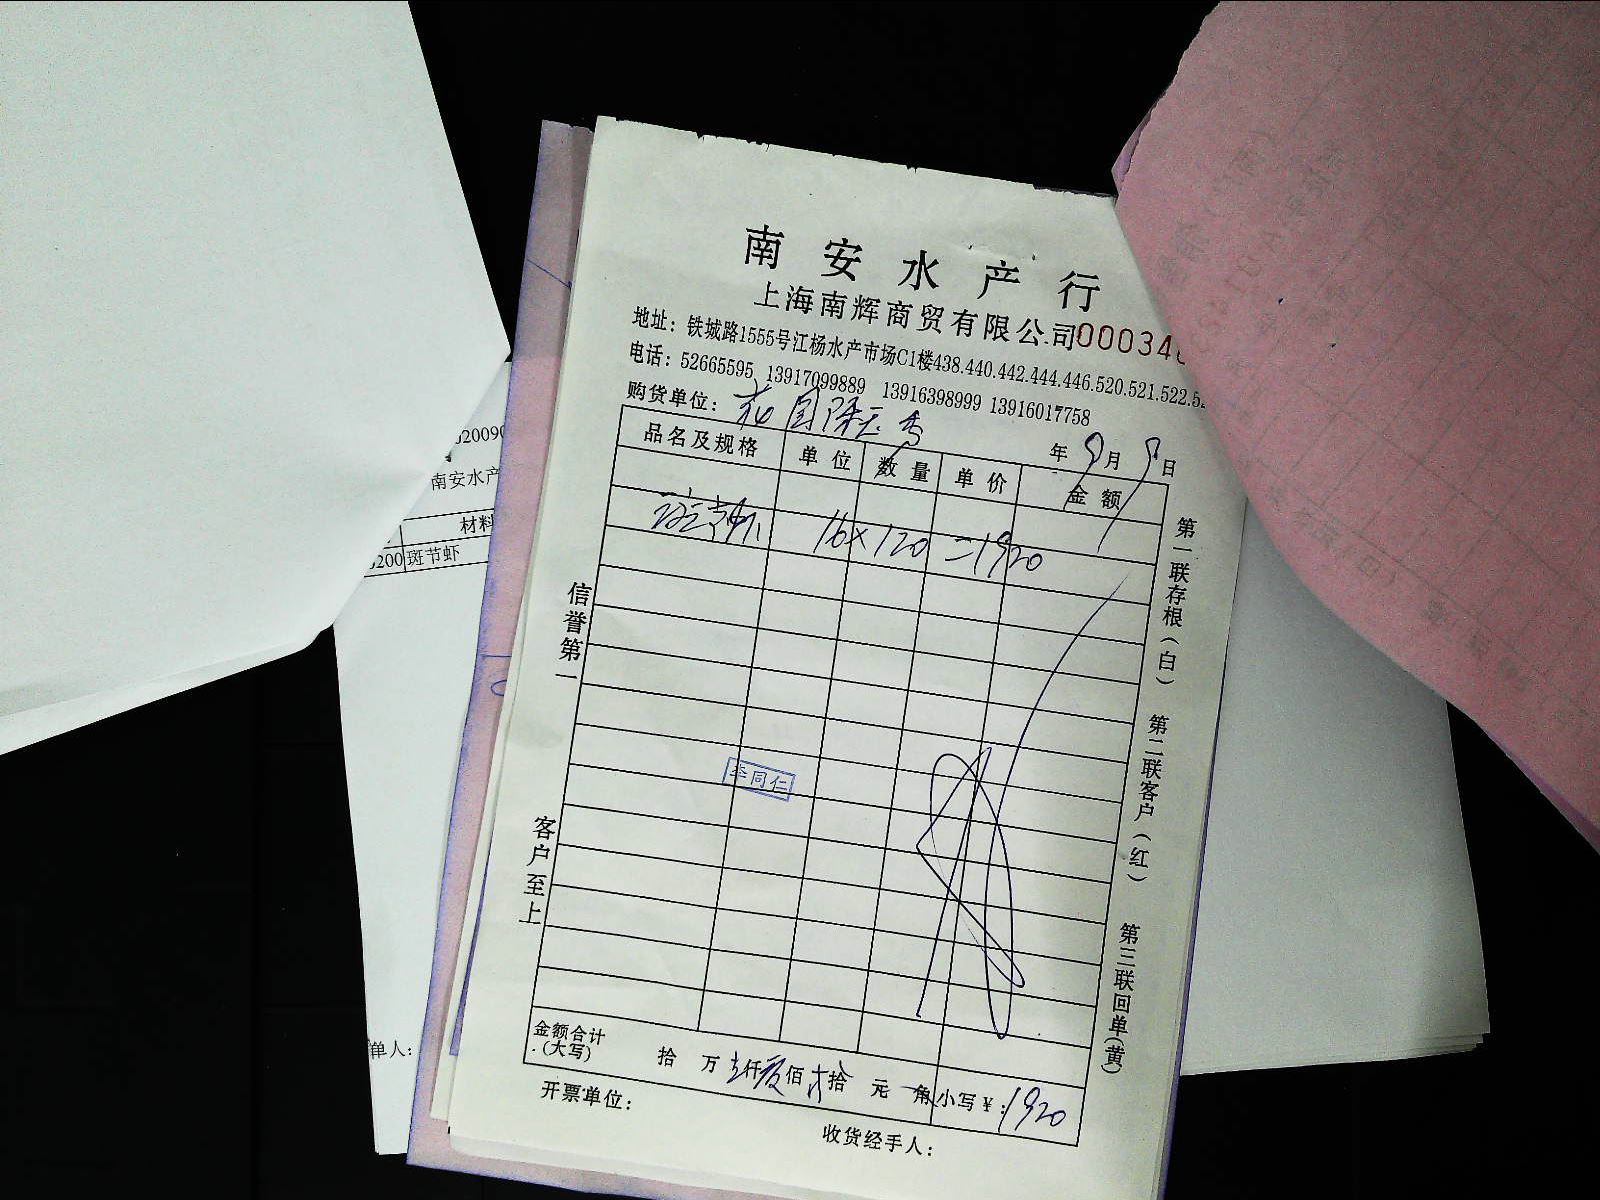 南安水产行
上海南辉商贸有限公司 000340
地址：铁城路1555号江杨水产市场C1楼438.440.442.444.446.520.521.522.52
电话：52665595 13917099889 13916398999 13916017758
购货单位：花园陈云秀
年 9月 9日
品名及规格 单位 数量 单价 金额
斑节虾 16×120=1920
信誉第一
客户至上
第一联存根（白） 第二联客户（红） 第三联回单（黄）
李同仁
金额合计（大写） 拾 万 仟 佰 拾 元 角 小写￥：1920
开票单位：
收货经手人：
20090
南安水产
材料
200 斑节虾
单人：